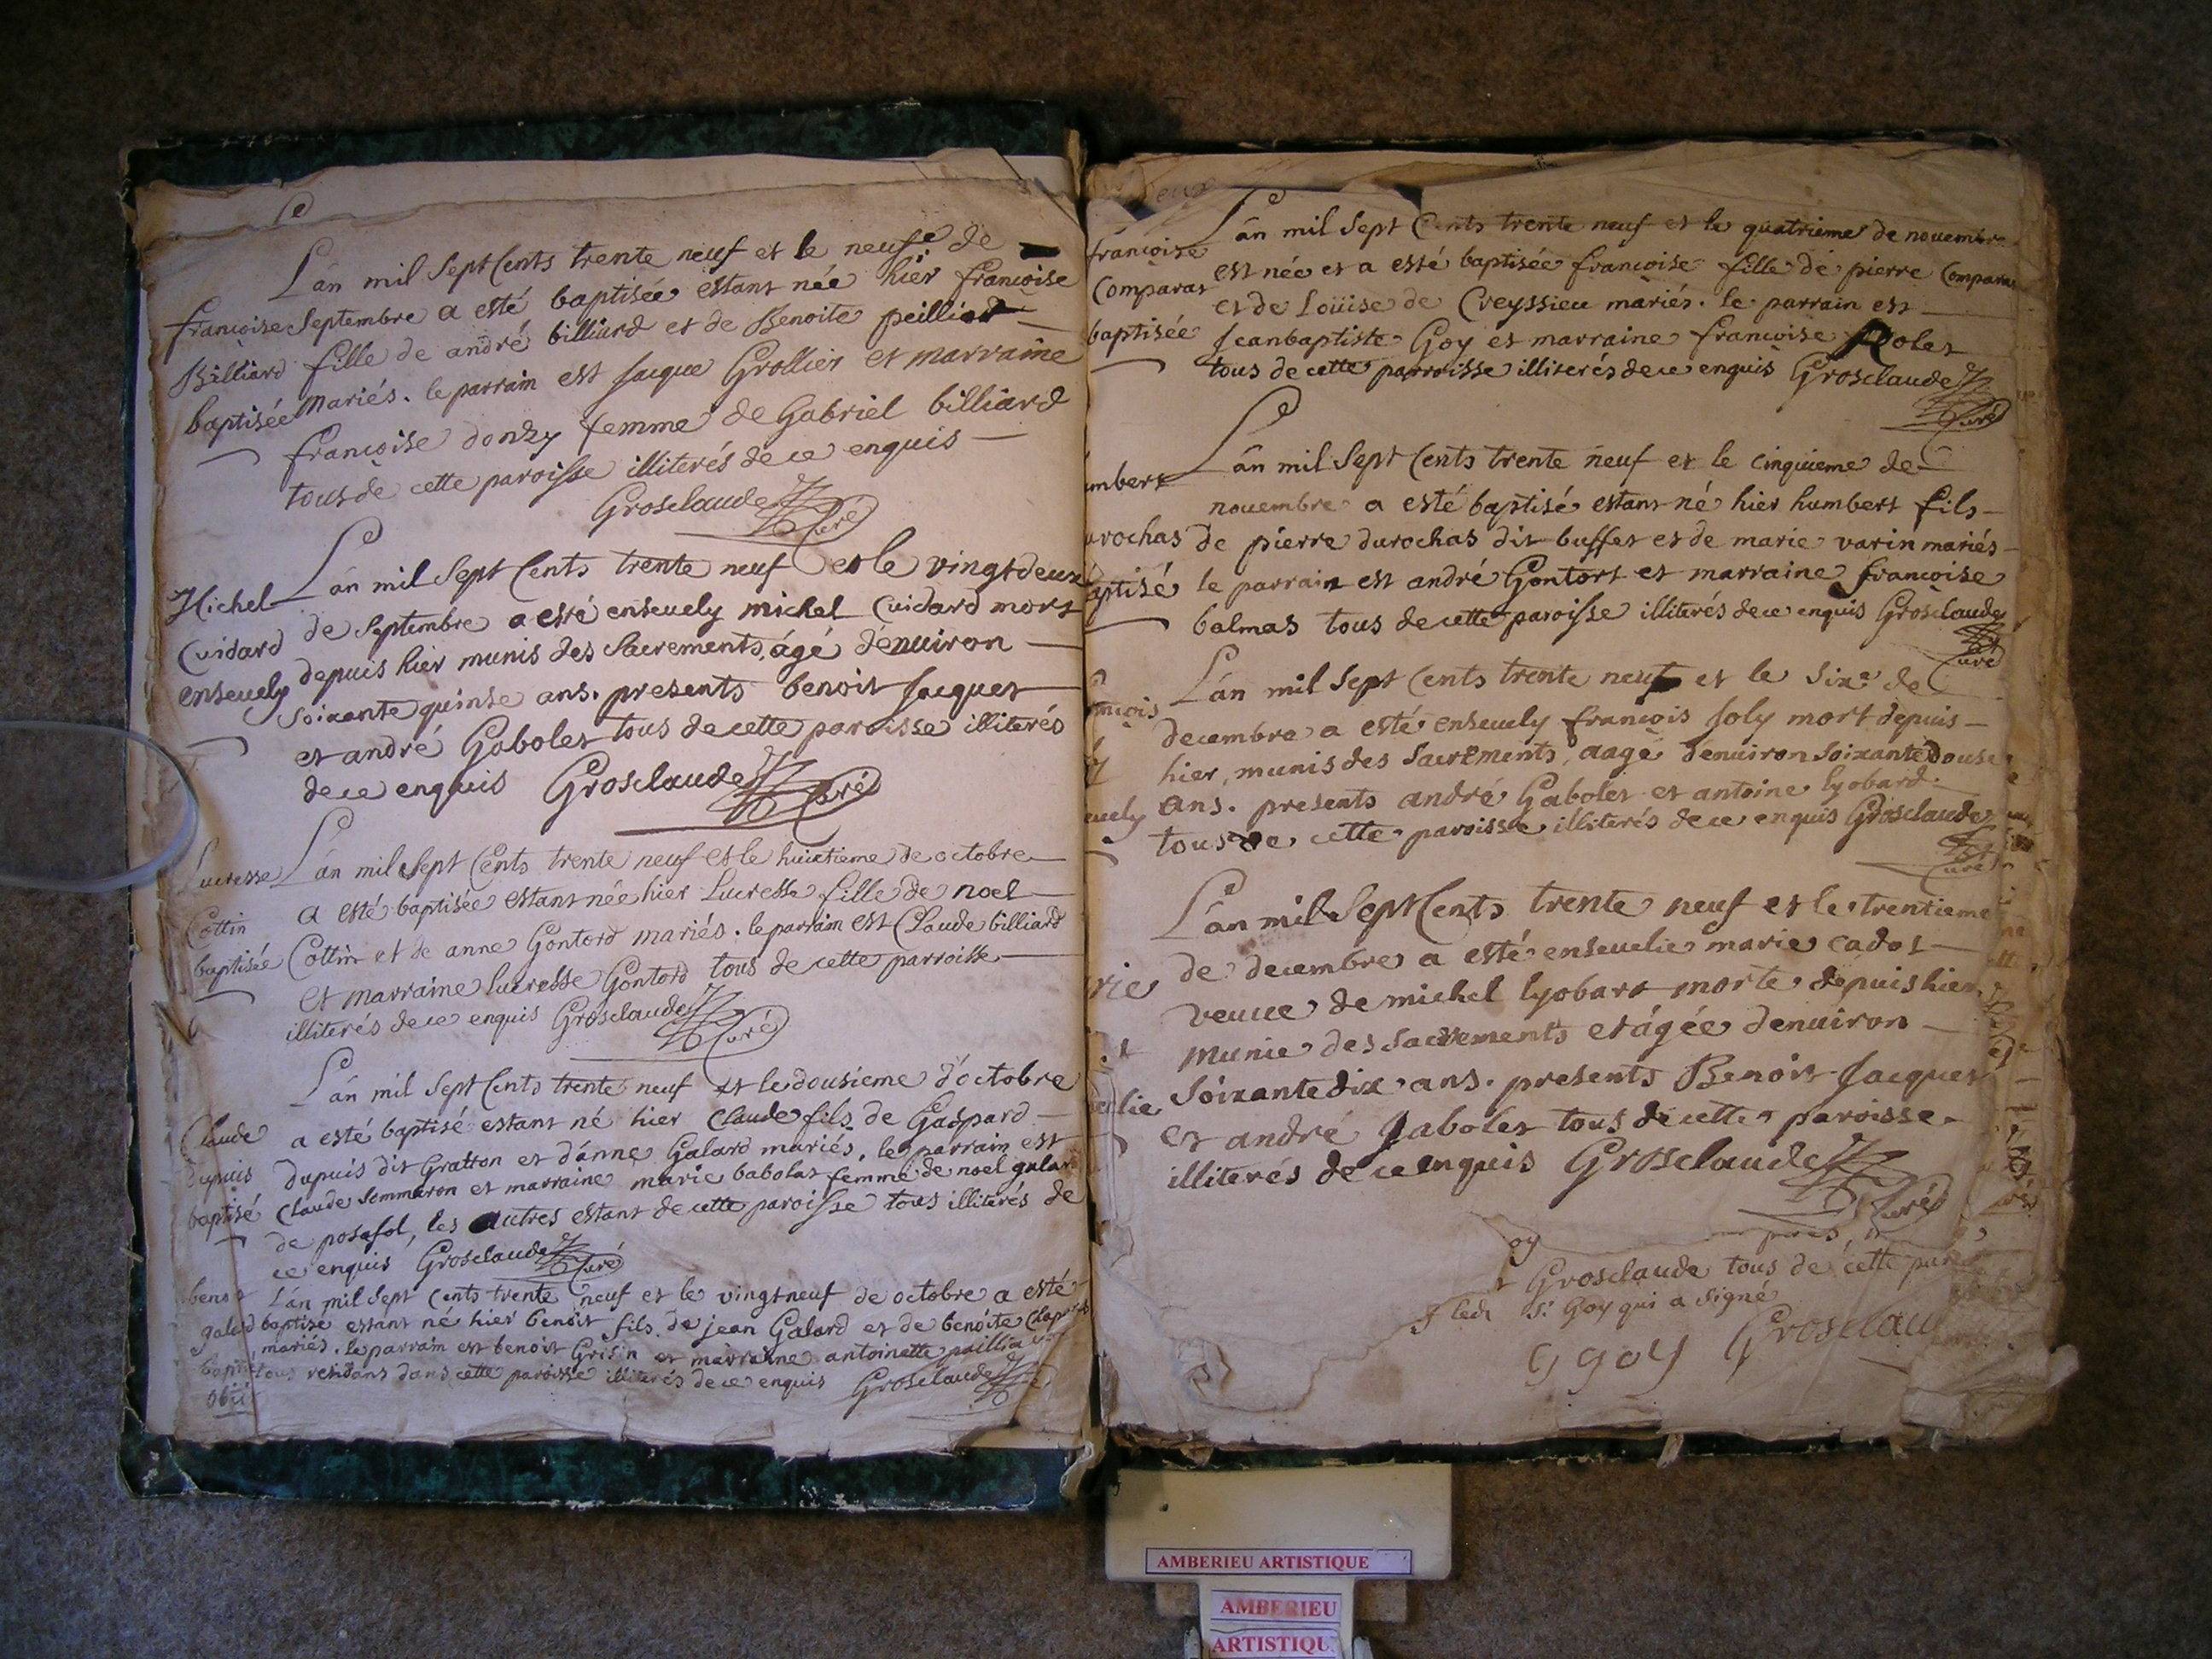 L'an mil Sept Cents trente neuf et le neufe de
françoise Septembre a esté baptisée estant née hier françoise
Billiard fille de andré billiard et de Benoite peilliard
baptisée mariés. le parrain est Jacque Grollier et marraine
françoise donzy femme de Gabriel billiard
tous de cette paroisse illiterés de ce enquis
Grosclaude Curé
L'an mil Sept Cents trente neuf et le vingt deux
Michel
Cuidard de Septembre a esté enseuely michel Cuidard mort
enseuely depuis hier munis des Sacrements, ágé denuiron
soixante quinse ans. presents benoit Jacquet
et andré Gabolet tous de cette paroisse illiterés
de ce enquis Grosclaude Curé
Lucresse L'an mil Sept Cents trente neuf et le huictieme de octobre
a esté baptisée estant née hier Lucresse fille de noel
Cottin
baptisée Cottin et de anne Gontord mariés. le parrain est Claude billiard
et marraine lucresse Gontord tous de cette parroisse
illiterés de ce enquis Grosclaude Curé
L'an mil Sept Cents trente neuf et le dousieme d'octobre
Claude a esté baptisé estant né hier Claude fils de Gaspard
dupuis dupuis dit Gratton et d'anne Galard mariés. le parrain est
baptisé Claude Sommaron et marraine marie babolat femme de noel galard
de posafol, les autres estant de cette paroisse tous illiterés de
ce enquis Grosclaude Curé
benoit L'an mil Sept Cents trente neuf et le vingt neuf de octobre a esté
galard baptisé estant né hier benoit fils de jean Galard et de benoite
mariés. le parrain est benoit Grisin et marraine antoinette
tous residans dans cette paroisse illiterés de ce enquis Grosclaude
obiit
L'an mil Sept Cents trente neuf et le quatrieme de nouembre
françoise est née et a esté baptisée françoise fille de pierre Comparat
Comparat et de Loüise de Creyssieu mariés. le parrain est
baptisée Jean baptiste Goy et marraine françoise Rolet
tous de cette parroisse illiterés de ce enquis Grosclaude
Curé
L'an mil Sept Cents trente neuf et le cinquieme de
umbert nouembre a esté baptisé estant né hier humbert fils
urochas de pierre durochas dit buffet et de marie varin mariés
aptisé le parrain est andré Gontort et marraine françoise
balmas tous de cette paroisse illiterés de ce enquis Grosclaude
Curé
L'an mil Sept Cents trente neuf et le Sixe de
ançois decembre a esté enseuely françois Joly mort depuis
ly hier, munis des Sacrements, aagé denuiron soixante douse
euely ans. presents andré Gabolet et antoine lyobard
tous de cette paroisse illiterés de ce enquis Grosclaude
Curé
L'an mil Sept Cents trente neuf et le trentieme
de decembre a esté enseuelie marie cadot
rie veuue de michel lyobart morte depuis hier
munie des Sacrements et ágée denuiron
elie soixante dix ans. presents Benoit Jacquet
et andré gabolet tous de cette paroisse
illiterés de ce enquis Grosclaude
Curé
Grosclaude tous de cette
Sr Goy qui a Signé
Goy Grosclau
AMBERIEU ARTISTIQUE
AMBERIEU
ARTISTIQU